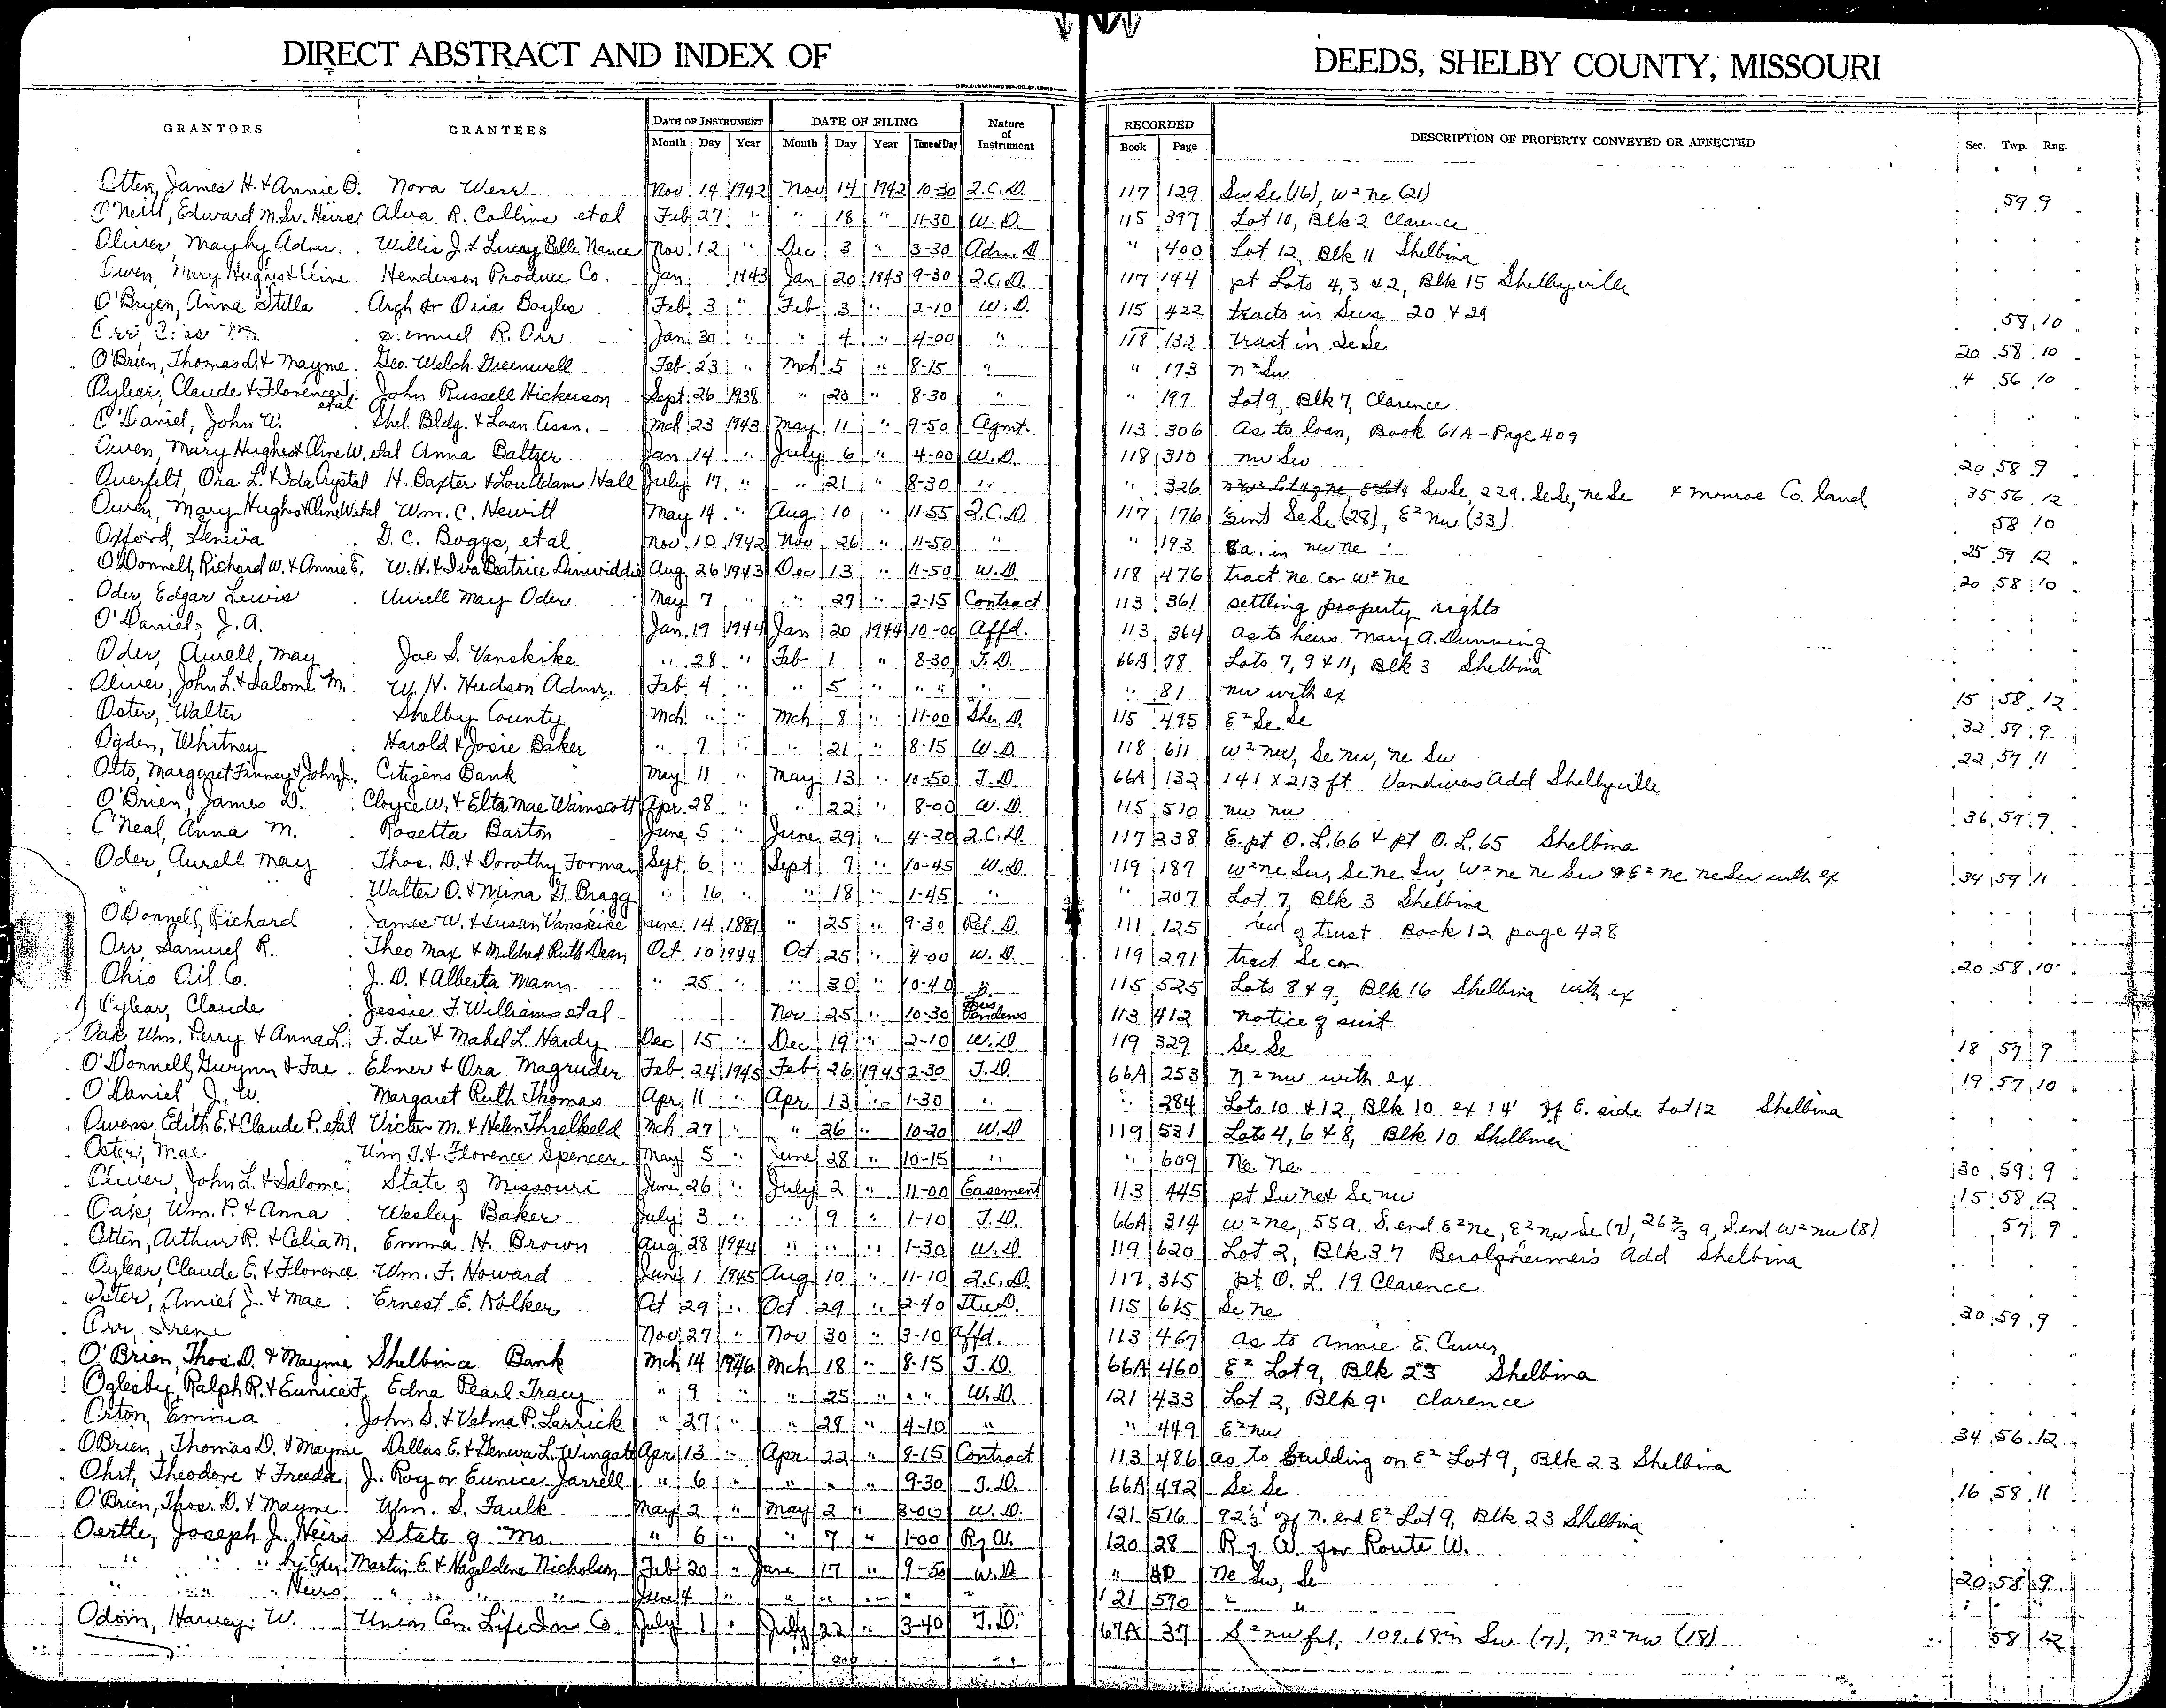 DIRECT ABSTRACT AND INDEX OF DEEDS, SHELBY COUNTY, MISSOURI
GEO. D. BARNARD STA. CO. ST. LOUIS
GRANTORS GRANTEES DATE OF INSTRUMENT DATE OF FILING Nature of Instrument RECORDED DESCRIPTION OF PROPERTY CONVEYED OR AFFECTED Sec. Twp. Rng.
Month Day Year Month Day Year Time of Day Book Page
Otten, James H. & Annie O. Nora Werr Nov 14 1942 Nov 14 1942 10-30 Q.C.D. 117 129 Sw Se (16), W² Ne (21) 59 9
O'Neill, Edward M. Sr. Heirs Alva R. Collins etal Feb 27 " " 18 " 11-30 W.D. 115 397 Lot 10, Blk 2 Clarence
Oliver, May by Admr. Willis J. & Lucay Belle Nance Nov 12 " Dec 3 " 3-30 Adm. D. " 400 Lot 12, Blk 11 Shelbina
Owen, Mary Hughes & Cline Henderson Produce Co. Jan 1943 Jan 20 1943 9-30 Q.C.D. 117 144 pt Lots 4, 3 & 2, Blk 15 Shelbyville
O'Bryen, Anna Stella Arch & Oria Boyles Feb 3 " Feb 3 " 2-10 W.D. 115 422 tracts in Secs 20 & 29 58 10
Samuel R. Orr Jan 30 " " 4 " 4-00 " 118 132 tract in Se Se 20 58 10
O'Brien, Thomas D. & Mayme Geo. Welch Greenwell Feb 23 " Mch 5 " 8-15 " " 173 N² Sw 4 56 10
Oylear, Claude & Florence J. etal John Russell Hickerson Sept 26 1938 " 20 " 8-30 " " 197 Lot 9, Blk 7, Clarence
O'Daniel, John W. Shel. Bldg. & Loan Assn. Mch 23 1943 May 11 " 9-50 Agmt. 113 306 As to loan, Book 61A - Page 409
Owen, Mary Hughes & Cline W. etal Anna Baltzer Jan 14 " July 6 " 4-00 W.D. 118 310 nw Sw 20 58 9
Overfelt, Ora L. & Ida Crystal H. Baxter & Lou Adam Hall July 17 " " 21 " 8-30 " " 326 Sw Se, 22a. Se Se, ne Se & Monroe Co. land 35 56 12
Owen, Mary Hughes & Cline W. etal Wm. C. Hewitt May 14 " Aug 10 " 11-55 Q.C.D. 117 176 Se Se (28), E² nw (33) 58 10
Oxford, Geneva G. C. Boggs, etal Nov 10 1942 Nov 26 " 11-50 " " 193 8a. in nw ne 25 59 12
O'Donnell, Richard W. & Annie E. W. H. & Iva Beatrice Dinwiddie Aug 26 1943 Dec 13 " 11-50 W.D. 118 476 tract ne cor W² ne 20 58 10
Oder, Edgar Lewis Aurell May Oder May 7 " " 27 " 2-15 Contract 113 361 settling property rights
O'Daniel, J. A. Jan 19 1944 Jan 20 1944 10-00 Affd. 113 364 as to heirs Mary A. Dunning
Oder, Aurell May Joe S. Vanskike " 28 " Feb 1 " 8-30 T.D. 66A 78 Lots 7, 9 & 11, Blk 3 Shelbina
Oliver, John L. & Salome M. W. H. Hudson Admr. Feb 4 " " 5 " " " " " 81 nw with ex 15 58 12
Oster, Walter Shelby County Mch " " Mch 8 " 11-00 Sher. D. 115 495 E² Se Se 32 59 9
Ogden, Whitney Harold & Josie Baker " 7 " " 21 " 8-15 W.D. 118 611 W² nw, Se nw, ne Sw 22 57 11
Otto, Margaret Finney & John J. Citizens Bank May 11 " May 13 " 10-50 T.D. 66A 132 141 x 213 ft Vandivers Add Shelbyville
O'Brien, James D. Cloyce W. & Elta Mae Wainscott Apr 28 " " 22 " 8-00 W.D. 115 510 nw nw 36 57 9
O'Neal, Anna M. Rosetta Barton June 5 " June 29 " 4-20 Q.C.D. 117 238 E. pt O.L. 66 & pt O.L. 65 Shelbina
Oder, Aurell May Thos. D. & Dorothy Forman Sept 6 " Sept 7 " 10-45 W.D. 119 187 W² ne Sw, Se ne Sw, W² ne ne Sw & E² ne ne Sw with ex 34 59 11
" Walter O. & Mina G. Bragg " 16 " " 18 " 1-45 " " 207 Lot 7, Blk 3 Shelbina
O'Donnell, Richard James W. & Susan Vanskike June 14 1889 " 25 " 9-30 Rel. D. 111 125 deed of trust Book 12 page 428
Orr, Samuel R. Theo Max & Mildred Ruth Dean Oct 10 1944 Oct 25 " 4-00 W.D. 119 271 tract Se cor 20 58 10
Ohio Oil Co. J. D. & Alberta Mann " 25 " " 30 " 10-40 " 115 525 Lots 8 & 9, Blk 16 Shelbina with ex
Oylear, Claude Jessie F. Williams etal Nov 25 " 10-30 Lis Pendens 113 412 notice of suit
Oak, Wm. Perry & Anna L. F. Lee & Mabel L. Hardy Dec 15 " Dec 19 " 2-10 W.D. 119 329 Se Se 18 57 9
O'Donnell, Gwynn & Fae Elmer & Ora Magruder Feb 24 1945 Feb 26 1945 2-30 T.D. 66A 253 N² nw with ex 19 57 10
O'Daniel, J. W. Margaret Ruth Thomas Apr 11 " Apr 13 " 1-30 " " 284 Lots 10 & 12, Blk 10 ex 14' off E. side Lot 12 Shelbina
Owens, Edith E. & Claude P. etal Victor M. & Helen Threlkeld Mch 27 " " 26 " 10-20 W.D 119 531 Lots 4, 6 & 8, Blk 10 Shelbina
Oster, Mae Wm T. & Florence Spencer May 5 " June 28 " 10-15 " " 609 Ne Ne 30 59 9
Oliver, John L. & Salome State of Missouri June 26 " July 2 " 11-00 Easement 113 445 pt Sw ne & Se nw 15 58 12
Oak, Wm. P. & Anna Wesley Baker July 3 " " 9 " 1-10 T.D. 66A 314 W² ne, 55a. S. end E² ne, E² nw Se (7), 26 2/3 a, S. end W² nw (8) 57 9
Otten, Arthur R. & Celia M. Emma H. Brown Aug 28 1944 " " " 1-30 W.D. 119 620 Lot 2, Blk 37 Berolzheimer's Add Shelbina
Oylear, Claude E. & Florence Wm. F. Howard June 1 1945 Aug 10 " 11-10 Q.C.D. 117 315 pt O. L. 19 Clarence
Oster, Amiel J. & Mae Ernest E. Kolker Oct 29 " Oct 29 " 2-40 115 615 Se ne 30 59 9
Orr, Irene Nov 27 " Nov 30 " 3-10 Affd. 113 467 as to Annie E. Carver
O'Brien, Thos. D. & Mayme Shelbina Bank Mch 14 1946 Mch 18 " 8-15 T.D. 66A 460 E² Lot 9, Blk 23 Shelbina
Oglesby, Ralph R. & Eunice F. Edna Pearl Tracy " 9 " " 25 " " " W.D. 121 433 Lot 2, Blk 9 Clarence
Orton, Emma John S. & Velma P. Larrick " 27 " " 29 " 4-10 " " 449 E² nw 34 56 12
OBrien, Thomas D. & Mayme Dallas E. & Geneva L. Wingate Apr 13 " Apr 22 " 8-15 Contract 113 486 as to building on E² Lot 9, Blk 23 Shelbina
Ohrt, Theodore & Freeda J. Roy or Eunice Jarrell " 6 " " " " 9-30 T.D. 66A 492 Se Se 16 58 11
O'Brien, Thos. D. & Mayme Wm. S. Faulk May 2 " May 2 " 3-00 W.D. 121 516 off N. end E² Lot 9, Blk 23 Shelbina
Oertle, Joseph J. Heirs State of Mo " 6 " " 7 " 1-00 R of W. 120 28 R of W. for Route W.
" " " by Exr. Martin E. & Hazeldene Nicholson Feb 20 " June 17 " 9-50 W.D " Ne Sw, Se 20 58 9
" " " Heirs " " " " June 4 " " " " " " 121 570 " "
Odoin, Harvey W. Union Cen. Life Ins Co July 1 " July 22 " 3-40 T.D. 67A 37 S² nw frl, 109.68 in Sw (7), N² nw (18) 58 12